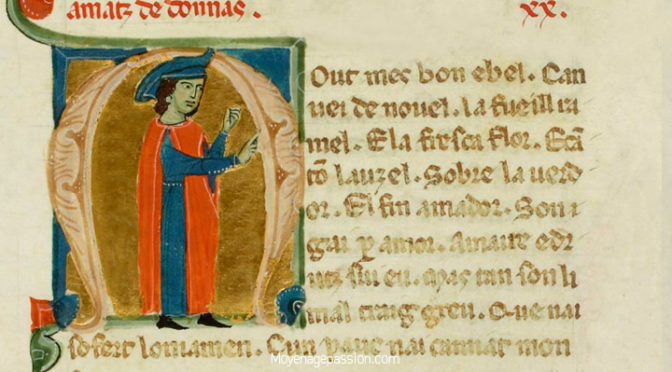 amatz de donnas . xx.
Mout mes bon ebel. Can
uei de nouel. la fueill ra
mel. Ela fresca flor. Ecā
tō lauzel. Sobre la uerd
or. El fin amador. Son
gai ꝑ amor. Amaire edr
utz siu eu. Mas tan son li
mal traig greu. Que nai
sofert loniamen. Cun pauc nai camiat mon
Moyenagepassion.com